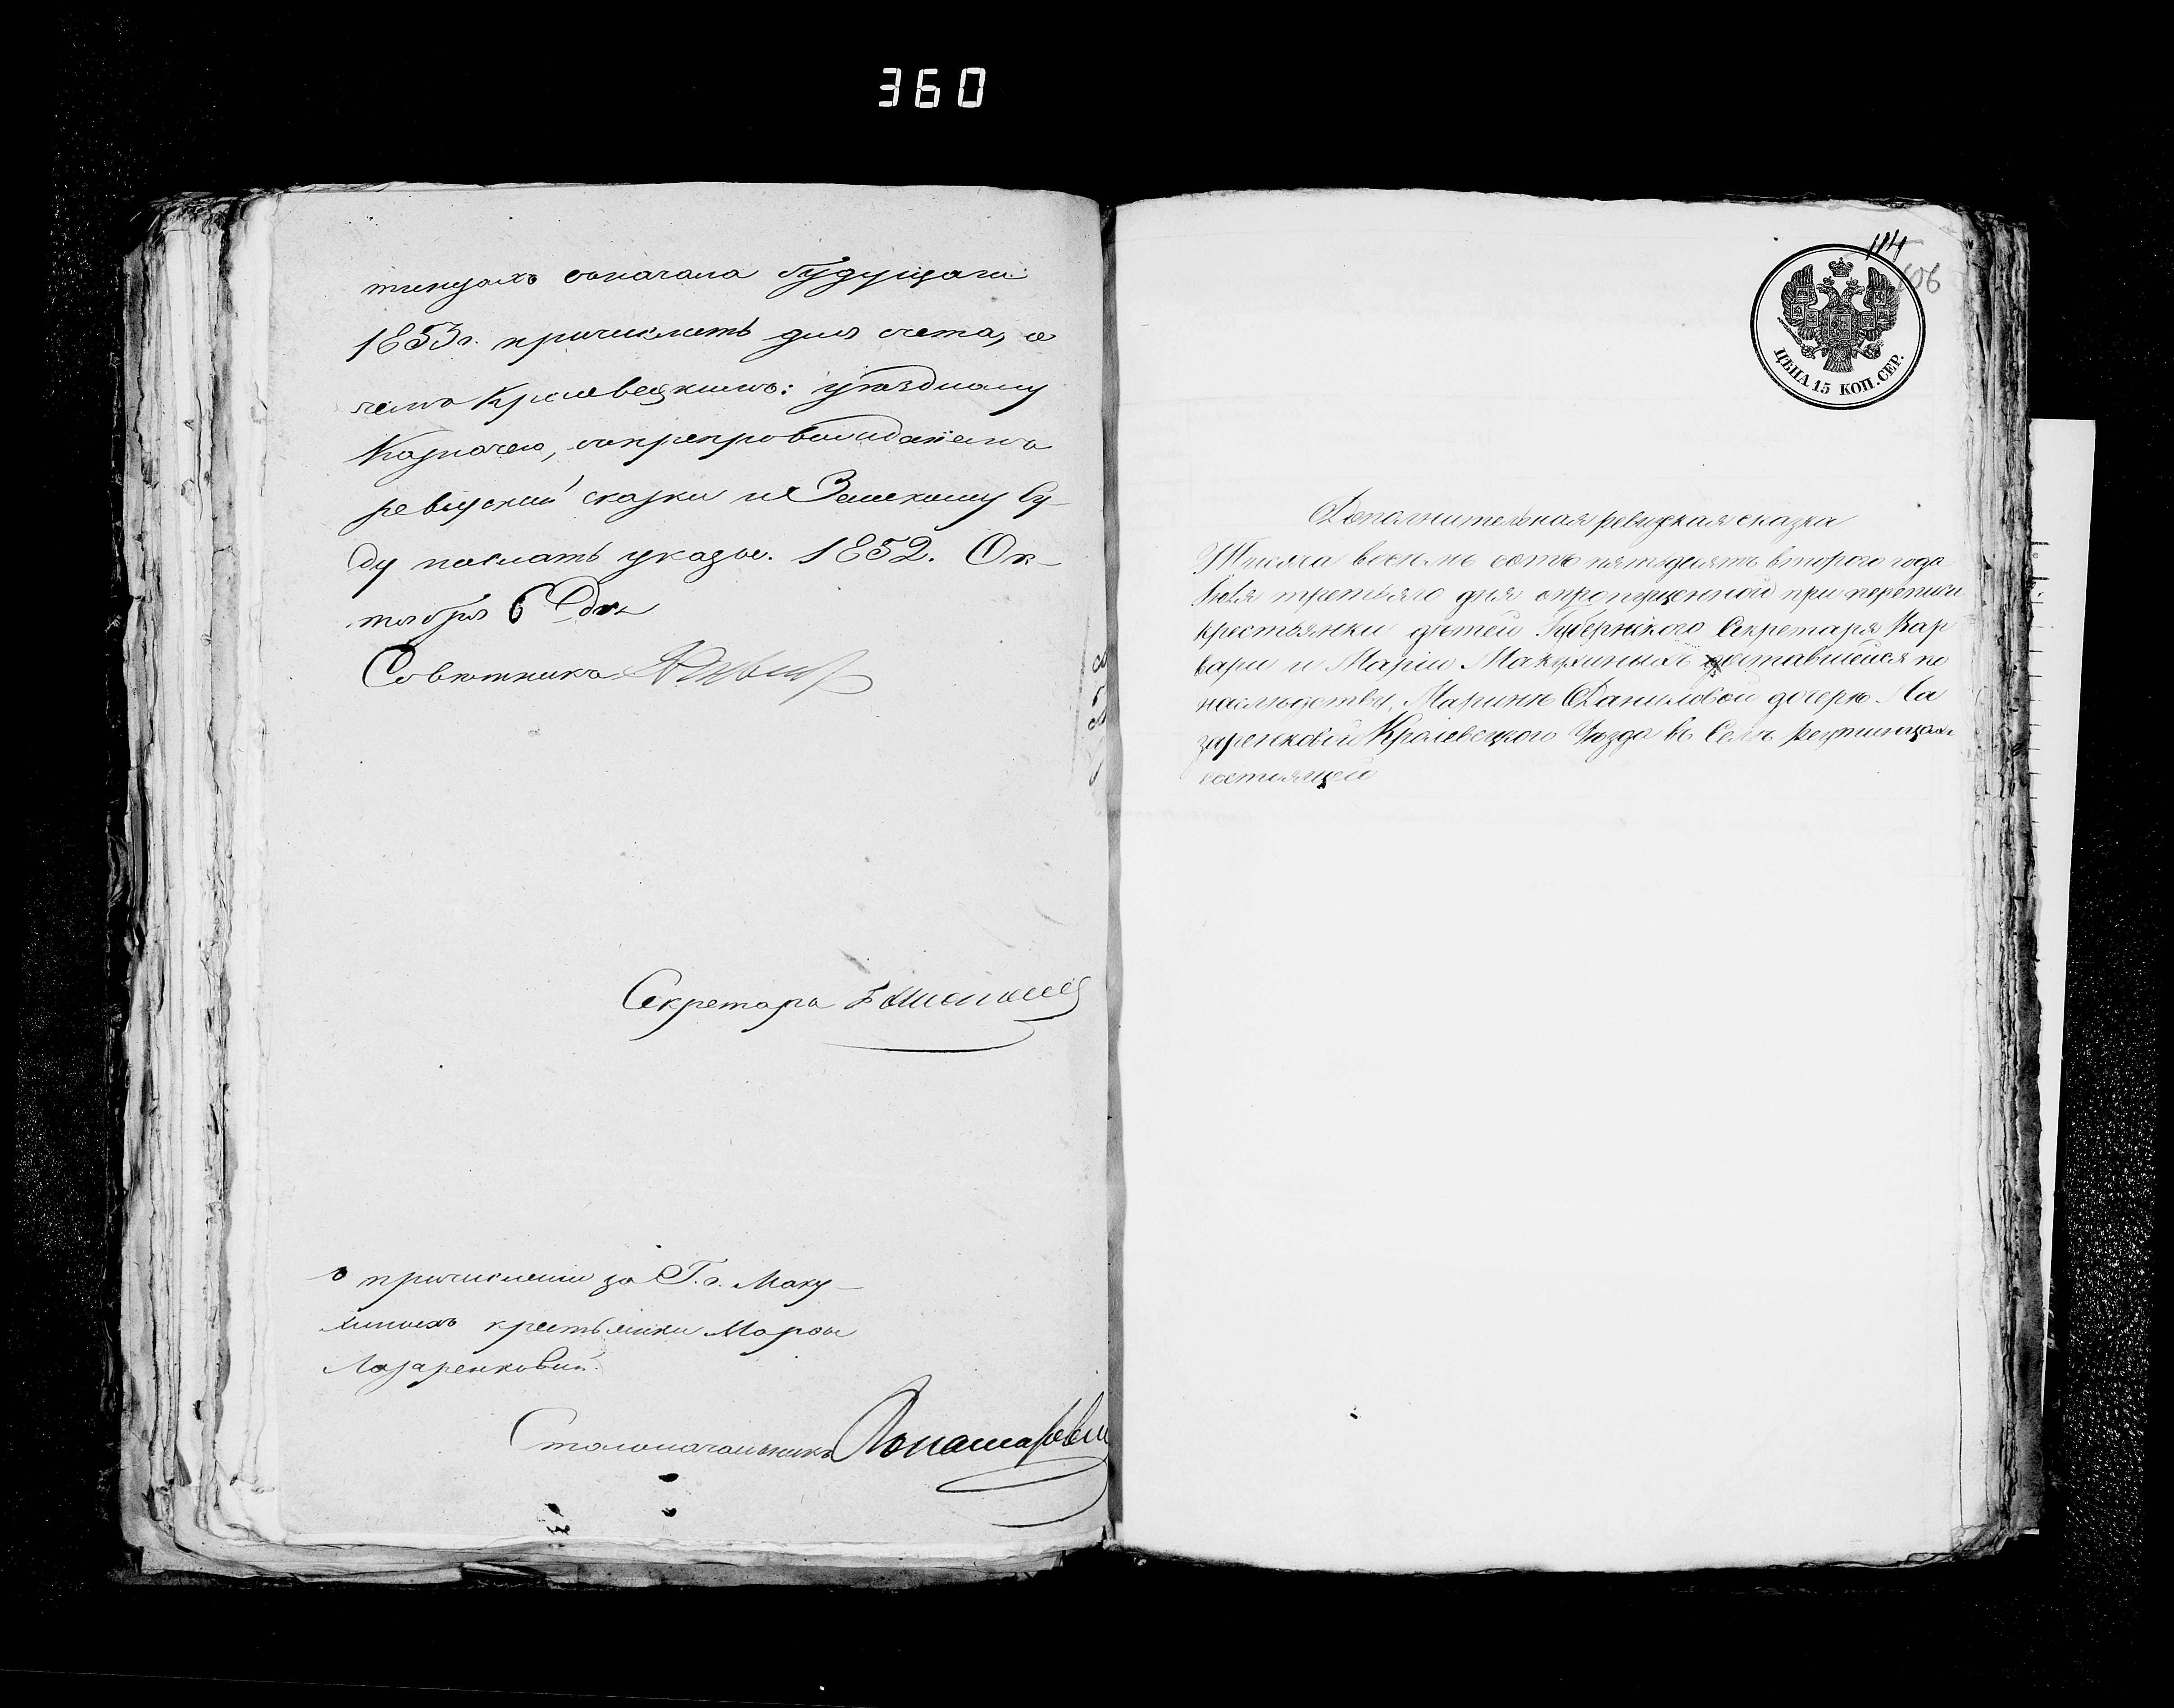 360
тинцахъ сначала будущаго
1853 г. причислить для счета, о
чемъ Кролевецкимъ: уѣздному
Казначею, съ препровожденіемъ
ревизской сказки и Земскому Су-
ду послать указы. 1852. Ок-
тября 6 дня
Совѣтникъ
Секретарь
о причисленіи за Г.г. Маку-
хиныхъ крестьянки Марьи
Лазаренковой.
Столоначальникъ
114
106
ЦѢНА 15 КОП. СЕР.
Дополнительная ревизкая сказка
Тысяча восемь сотъ пятьдесятъ второго года
третьяго дня опропущенной при переписи
крестьянки дѣтей Губернского Секретаря Вар
вари и Маріи Макухиныхъ доставшейся по
наслѣдству, Маринѣ Даниловой дочерѣ Ла
заренковой Кролевецкого Уѣзда въ Селѣ Реутинцахъ
состоящей